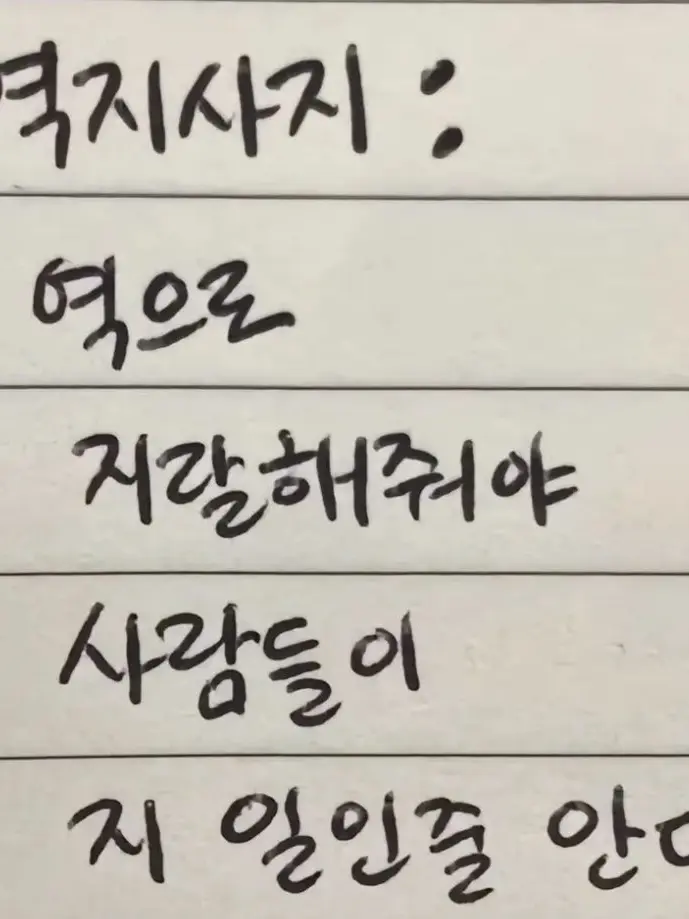 역지사지 :
역으로
지랄해줘야
사람들이
지 일인줄 안